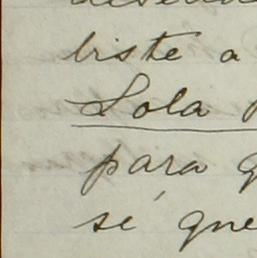 biste a
Lola
para q
sé que